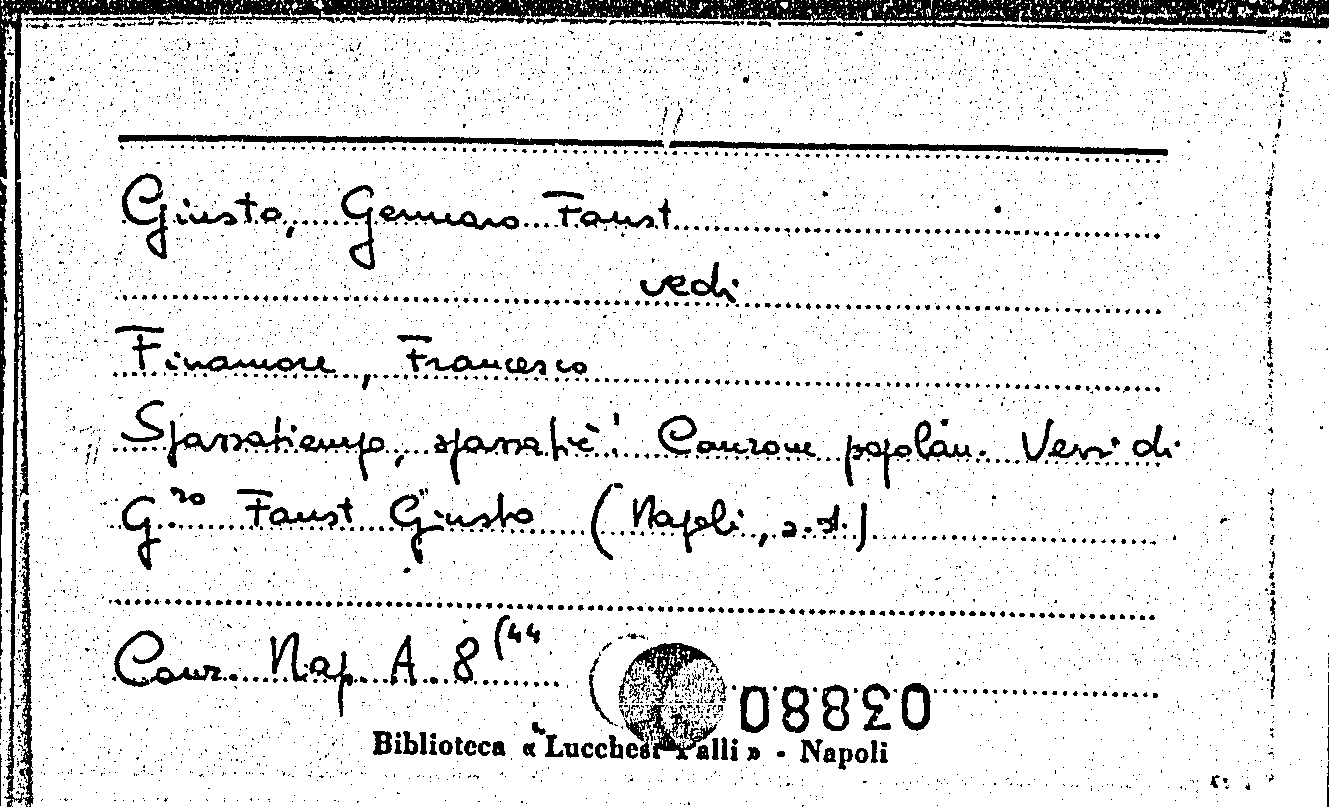 Giusto, Gennaro Faust
vedi
Finamore, Francesco
Spassatiempo, spassatiè! Canzone popolare. Versi di
G.ro Faust Giusto (Napoli, s.d.)
Canz. Nap. A. 8 (44
08830
Biblioteca «Lucchesi Palli» - Napoli